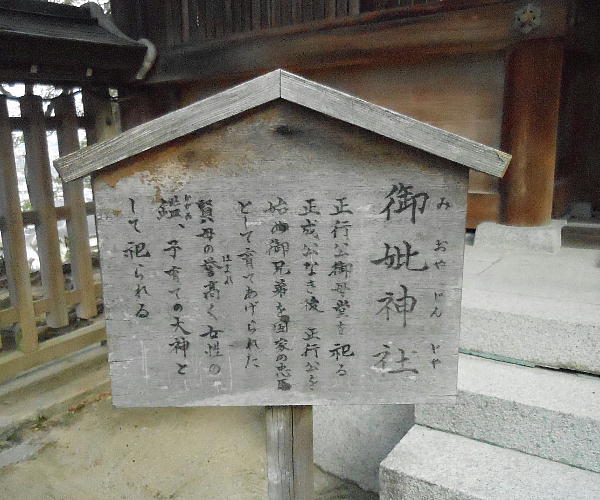 御妣神社
みおやじんじゃ
正行公御母堂を祀る
正成公なき後 正行公を
始め御兄弟を国家の忠臣
として育てあげられた
賢母の誉高く女性の
ほまれ
鑑、子育ての大神と
かがみ
して祀られる